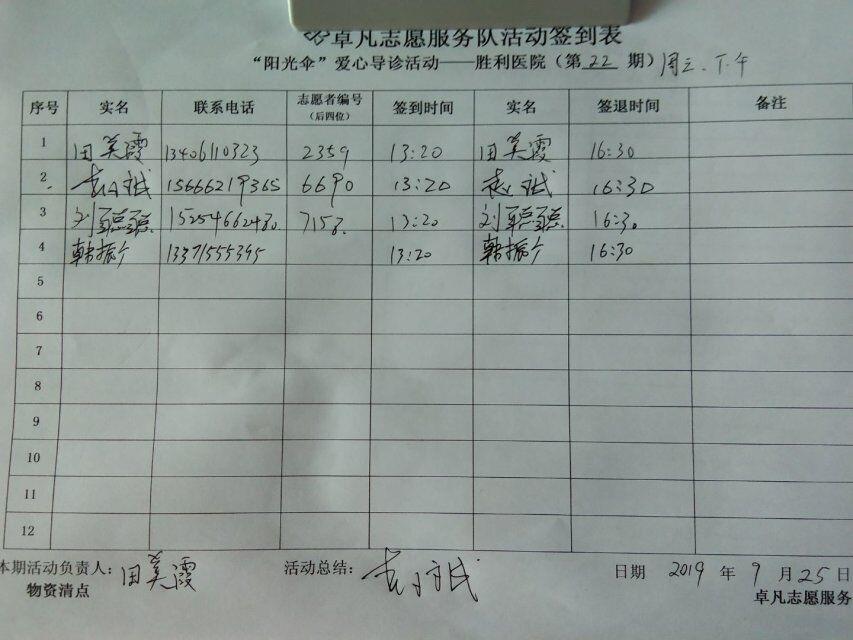 卓凡志愿服务队活动签到表
“阳光伞”爱心导诊活动——胜利医院（第 22 期）周三.下午
序号 实名 联系电话 志愿者编号（后四位） 签到时间 实名 签退时间 备注
1 田美霞 13406110323 2359 13:20 田美霞 16:30
2 15666219365 6690 13:20 16:30
3 刘聪聪 15254662480 7158 13:20 刘聪聪 16:30
4 韩振 13371555395 13:20 韩振 16:30
5
6
7
8
9
10
11
12
本期活动负责人：田美霞 活动总结： 日期 2019 年 9 月 25 日
物资清点 卓凡志愿服务